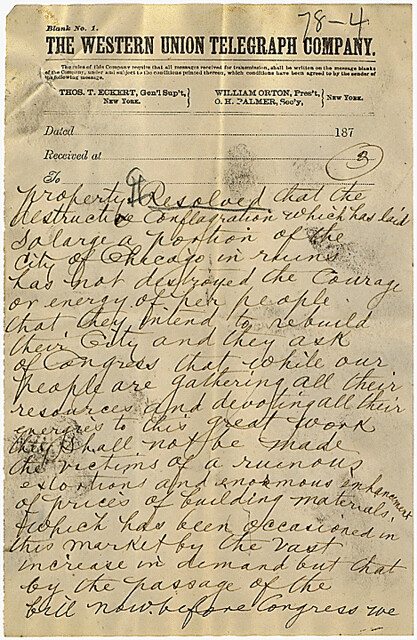 78-4
Blank No. 1.
THE WESTERN UNION TELEGRAPH COMPANY.
The rules of this Company require that all messages received for transmission, shall be written on the message blanks
of the Company, under and subject to the conditions printed thereon, which conditions have been agreed to by the sender of
the following message.
THOS. T. ECKERT, Gen'l Sup't,
NEW YORK.
WILLIAM ORTON, Pres't,
O. H. PALMER, Sec'y,
NEW YORK.
Dated 187
Received at
3
To
property. Resolved that the
destructive Conflagration which has laid
so large a portion of the
City of Chicago in ruins
has not destroyed the Courage
or energy of her people
that they intend to rebuild
their City and they ask
of Congress that while our
people are gathering all their
resources and devoting all their
energies to this great work
they shall not be made
the victims of a ruinous
extortions and enormous enhancement
of prices of building materials,
which has been occasioned in
this market by the vast
increase in demand but that
by the passage of the
bill now before Congress we